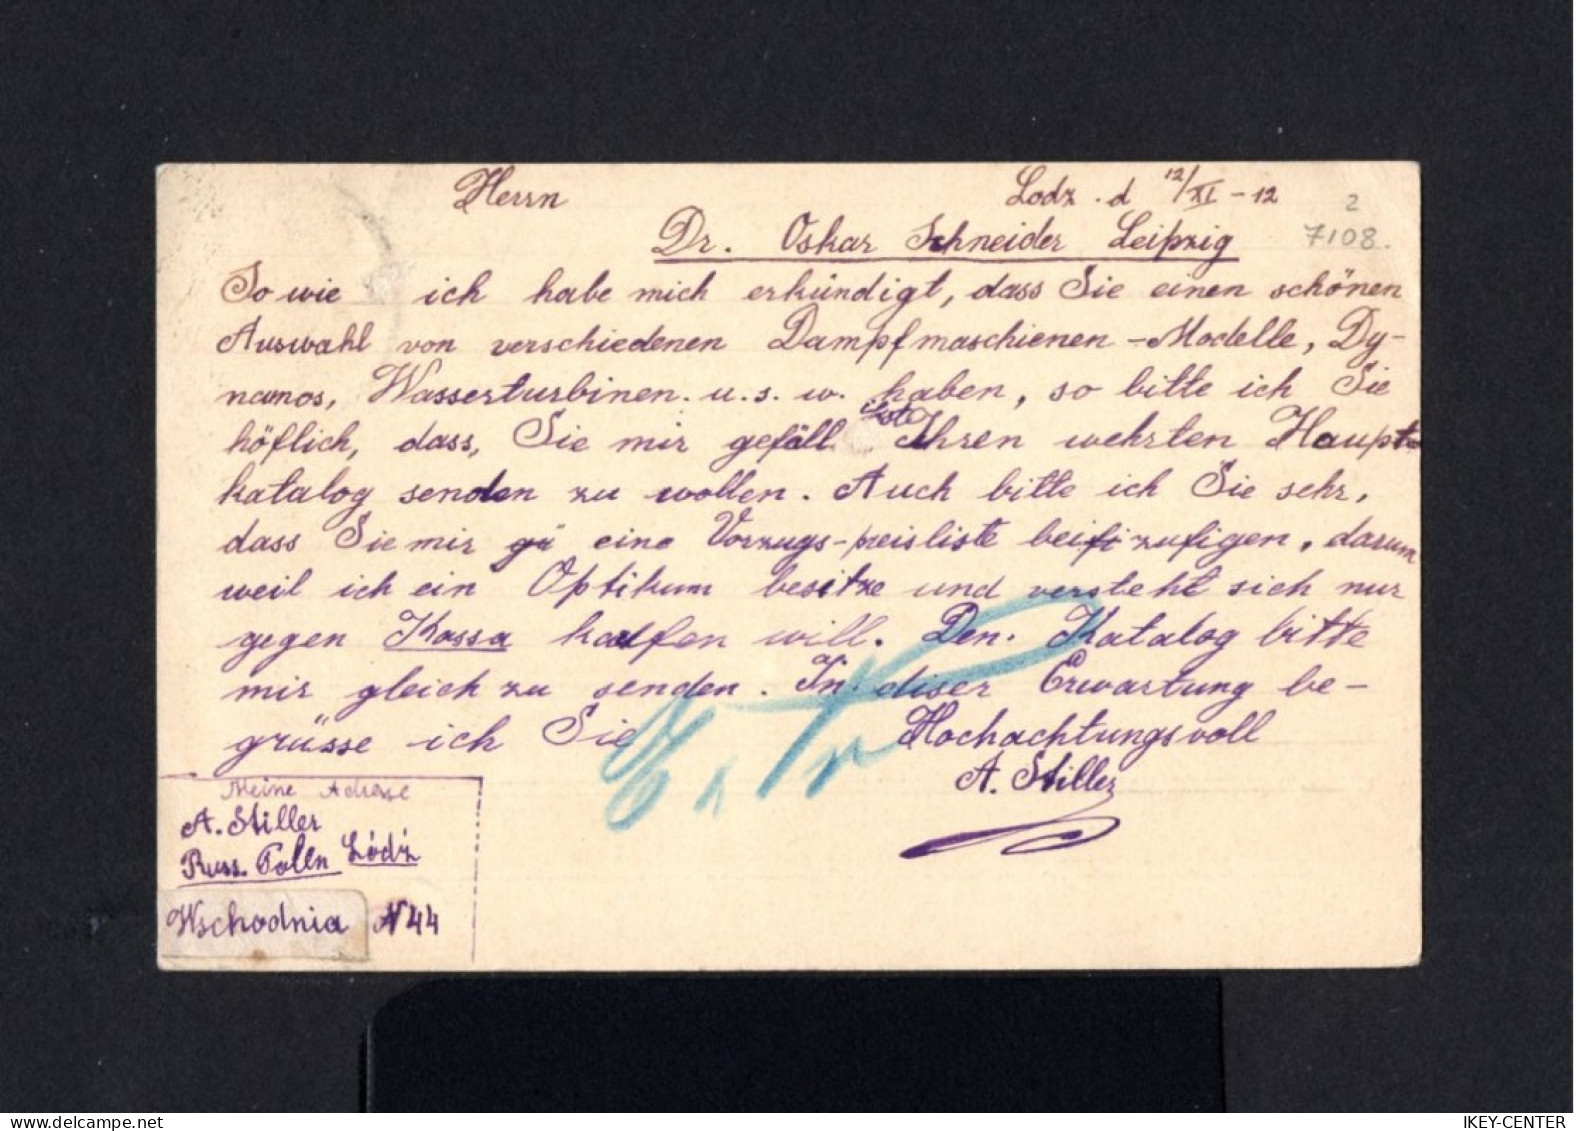 Herrn Lodz . d 12/XI - 12
2
7108.
Dr. Oskar Schneider Leipzig
So wie ich habe mich erkündigt, dass Sie einen schönen
Auswahl von verschiedenen Dampfmaschienen - Modelle, Dy-
namos, Wasserturbinen. u. s. w. haben, so bitte ich Sie
höflich, dass, Sie mir gefäll Ihren wehrten Haupt-
katalog senden zu wollen. Auch bitte ich Sie sehr,
dass Sie mir gü eine Vorzugs-preisliste beifizufigen, darum
weil ich ein Optikum besitze und versteht sich nur
gegen Kassa kaufen will. Den. Katalog bitte
mir gleich zu senden. In diser Erwartung be-
grüsse ich Sie Hochachtungsvoll
A. Stiller
Meine Adresse
A. Stiller
Russ. Polln Łódź
Wschodnia N 44
delcampe.net
IKEY-CENTER